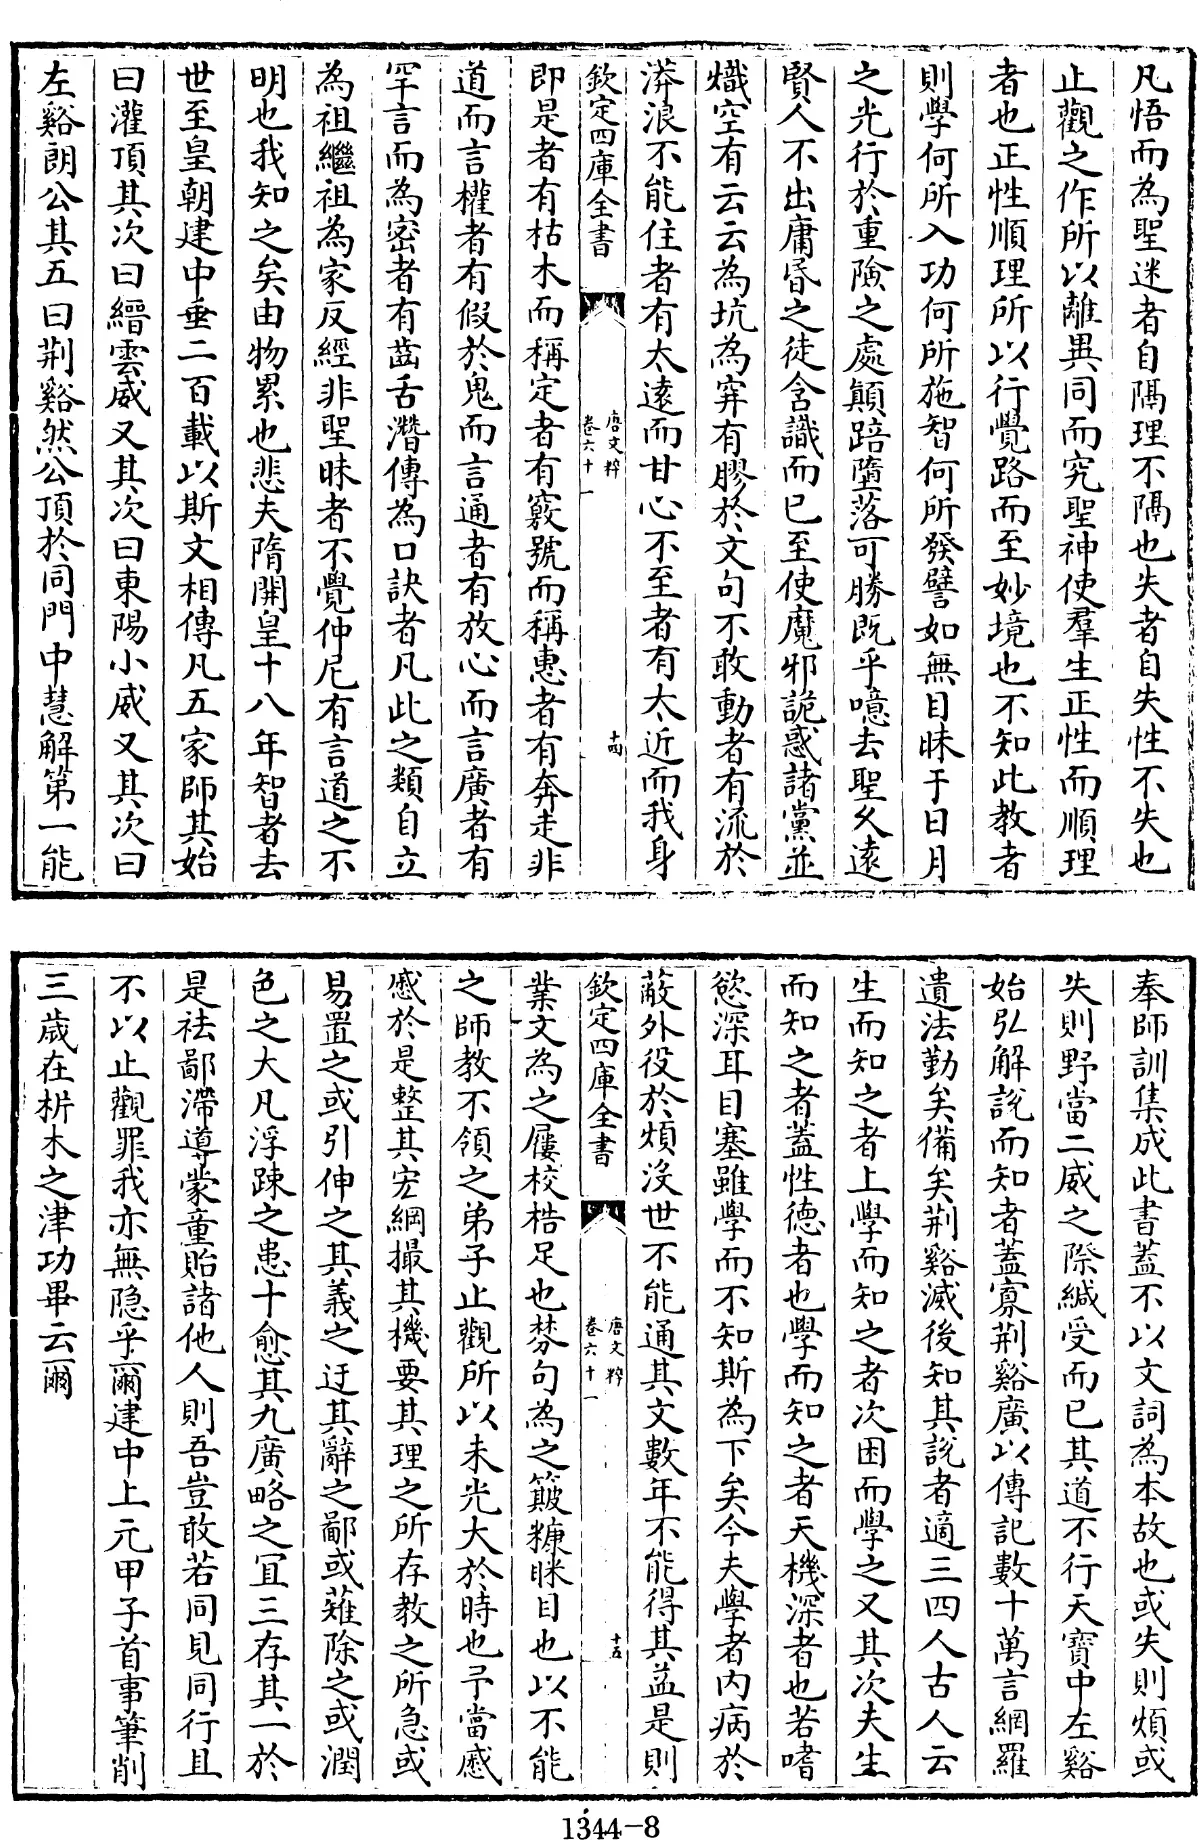 凡悟而為聖迷者自隔理不隔也失者自失性不失也
止觀之作所以離異同而究聖神使羣生正性而順理
者也正性順理所以行覺路而至妙境也不知此教者
則學何所入功何所施智何所發譬如無目昧于日月
之光行於重險之處顛踣墮落可勝既乎噫去聖久遠
賢人不出庸昏之徒含識而已至使魔邪詭惑諸黨並
熾空有云云為坑為穽有膠於文句不敢動者有流於
漭浪不能住者有太遠而甘心不至者有太近而我身
欽定四庫全書
唐文粹
卷六十一
十四
即是者有枯木而稱定者有竅號而稱惠者有奔走非
道而言權者有假於鬼而言通者有放心而言廣者有
罕言而為密者有齒舌潛傳為口訣者凡此之類自立
為祖繼祖為家反經非聖昧者不覺仲尼有言道之不
明也我知之矣由物累也悲夫隋開皇十八年智者去
世至皇朝建中垂二百載以斯文相傳凡五家師其始
曰灌頂其次曰縉雲威又其次曰東陽小威又其次曰
左谿朗公其五曰荆谿然公頂於同門中慧解第一能
奉師訓集成此書蓋不以文詞為本故也或失則煩或
失則野當二威之際緘受而已其道不行天寶中左谿
始弘解說而知者蓋寡荆谿廣以傳記數十萬言網羅
遺法勤矣備矣荆谿滅後知其說者適三四人古人云
生而知之者上學而知之者次困而學之又其次夫生
而知之者蓋性德者也學而知之者天機深者也若嗜
慾深耳目塞雖學而不知斯為下矣今夫學者内病於
蔽外役於煩没世不能通其文數年不能得其益是則
欽定四庫全書
唐文粹
卷六十一
十五
業文為之屨校梏足也棼句為之簸糠眯目也以不能
之師教不領之弟子止觀所以未光大於時也予當慼
慼於是整其宏綱撮其機要其理之所存教之所急或
易置之或引伸之其義之迂其辭之鄙或薙除之或潤
色之大凡浮疎之患十愈其九廣略之宜三存其一於
是袪鄙滯導蒙童貽諸他人則吾豈敢若同見同行且
不以止觀罪我亦無隐乎爾建中上元甲子首事筆削
三歲在析木之津功畢云爾
1344-8